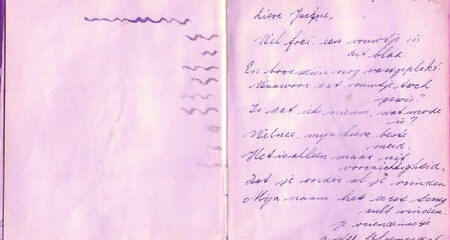 Lieve Jacque,
Wel foei, een vouwtje in
dit blad
En bovendien nog vastgeplakt.
Waarvoor dat vouwtje toch
Is dat iets nieuws, wat mode
is?
Welnee, mijn lieve, beste
meid.
Het is alleen maar uit
voorzichtigheid.
Dat je onder al je vrienden
Mijn naam het eerst terug
zult vinden.
je vriendinnetje